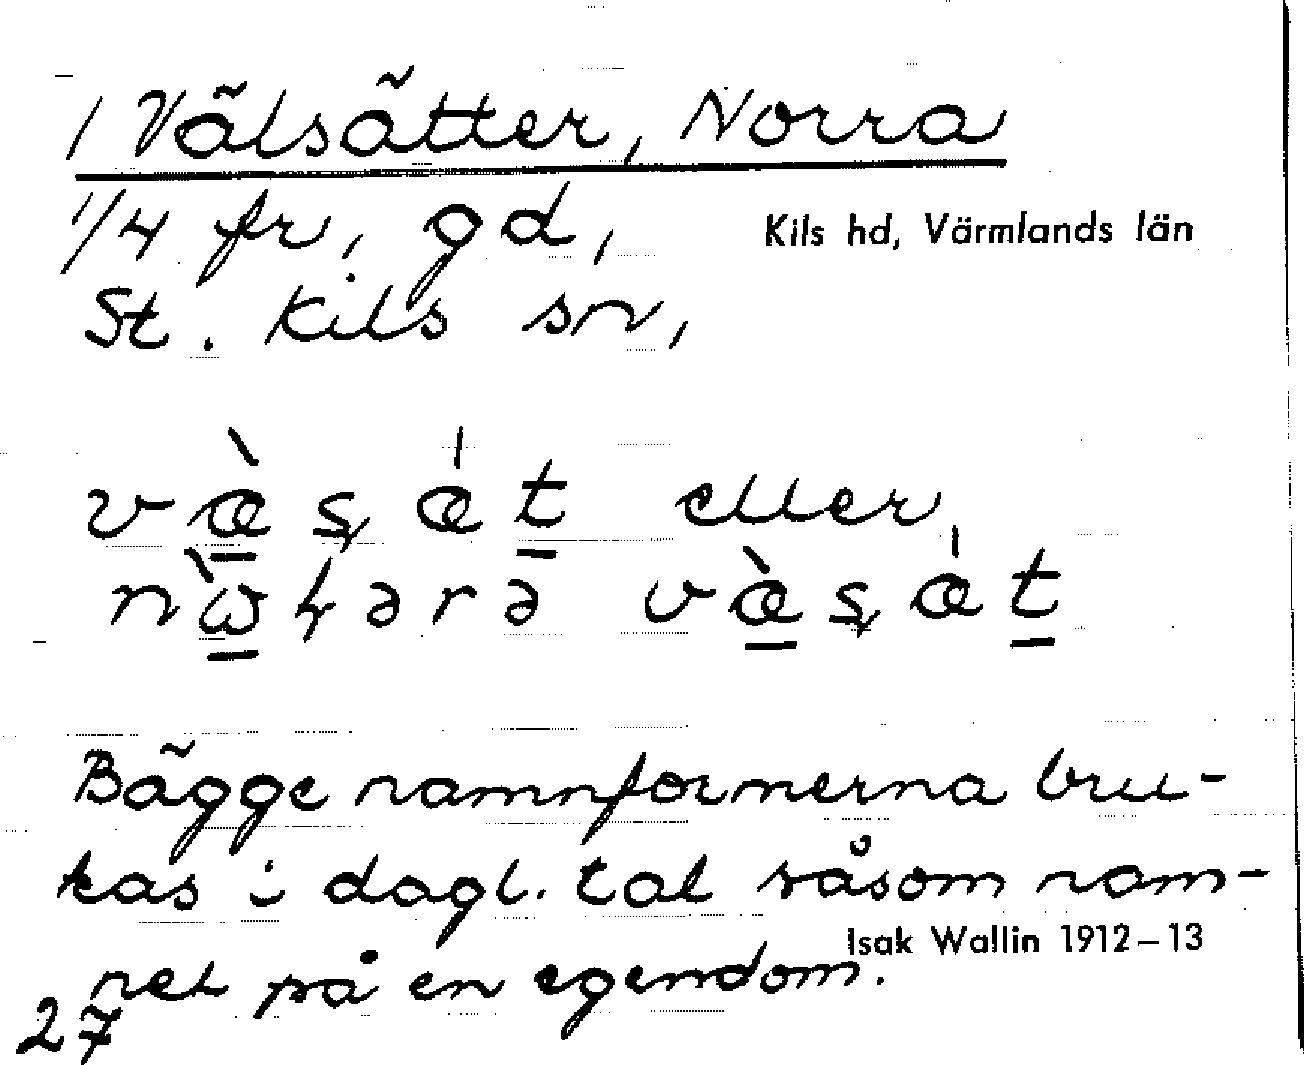 1 Välsätter, Norra
1/4 fr, gd, Kils hd, Värmlands län
St. Kils sn,
væ̀ʂæ̍t eller
nὼɧərə væ̀ʂæ̍t
Bägge namnformerna bru-
kas i dagl. tal såsom nam-
net på en egendom.
Isak Wallin 1912–13
27